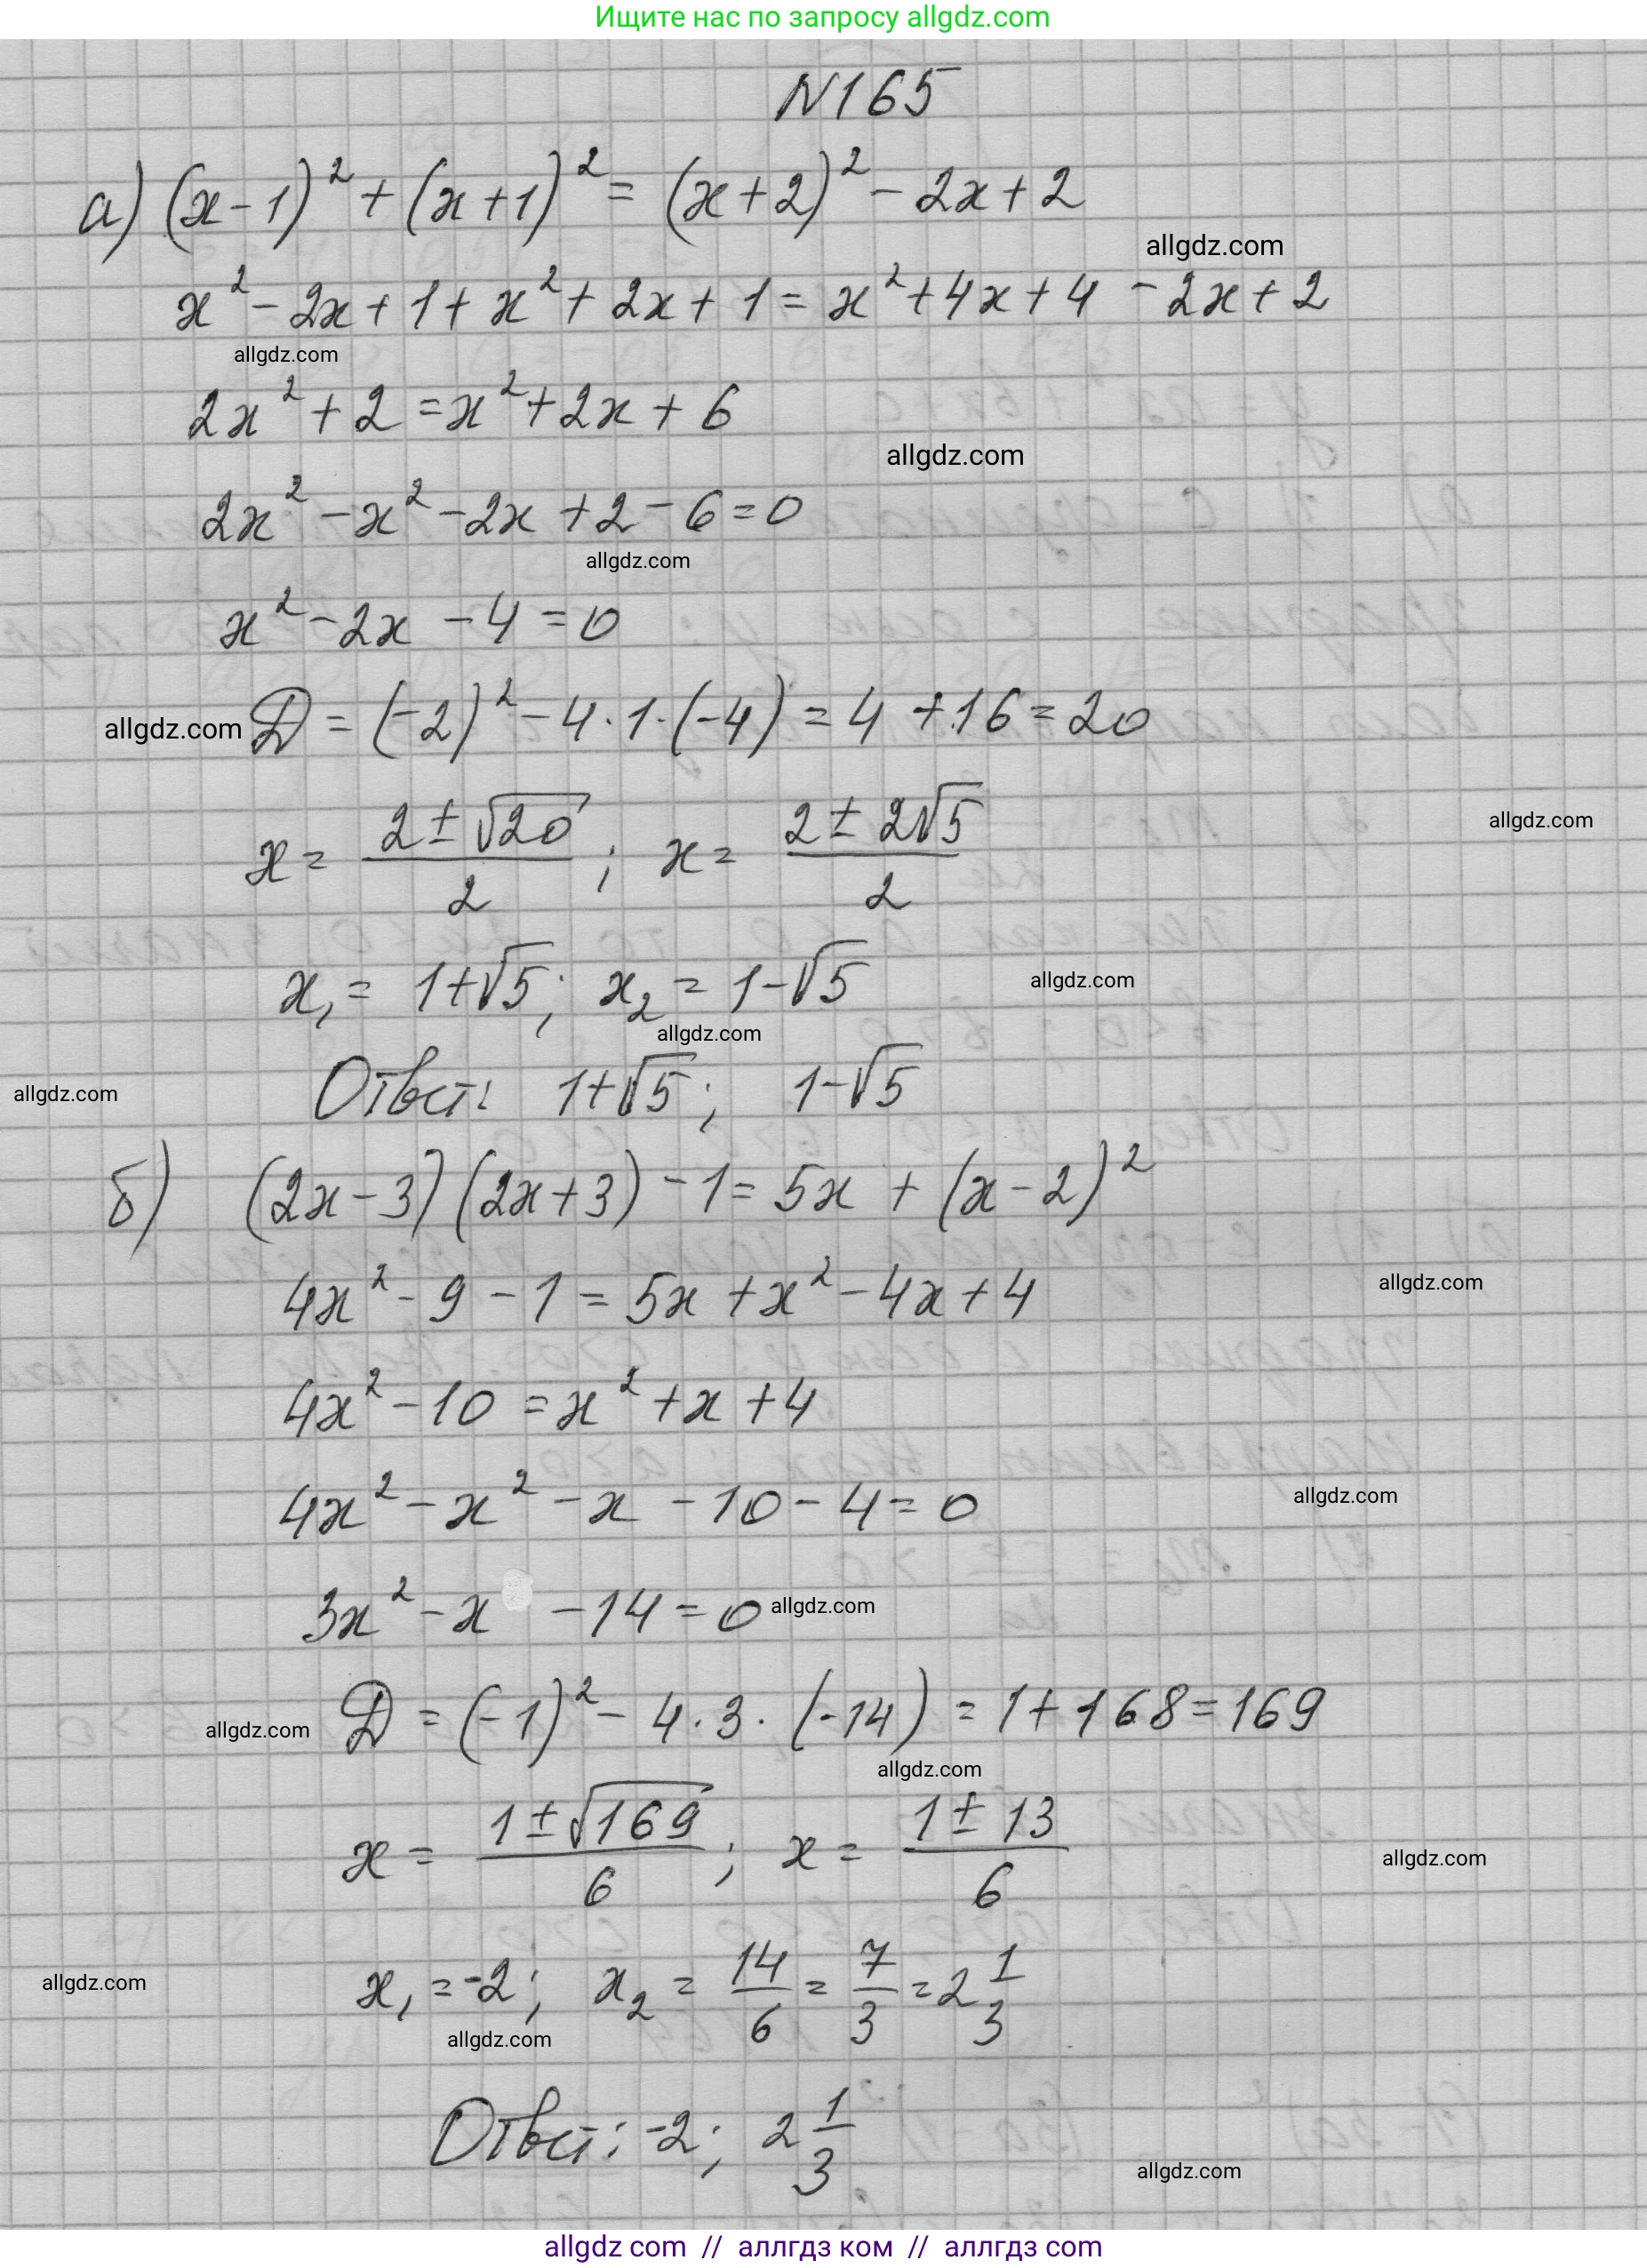 Ищите нас по запросу allgdz.com
N165
а) (x-1)² + (x+1)² = (x+2)² - 2x + 2
allgdz.com
x² - 2x + 1 + x² + 2x + 1 = x² + 4x + 4 - 2x + 2
allgdz.com
2x² + 2 = x² + 2x + 6
allgdz.com
2x² - x² - 2x + 2 - 6 = 0
allgdz.com
x² - 2x - 4 = 0
allgdz.com D = (-2)² - 4·1·(-4) = 4 + 16 = 20
x = (2 ± √20)/2 ; x = (2 ± 2√5)/2
allgdz.com
x₁ = 1+√5; x₂ = 1-√5
allgdz.com
allgdz.com
Ответ: 1+√5; 1-√5
allgdz.com
б) (2x-3)(2x+3) - 1 = 5x + (x-2)²
allgdz.com
4x² - 9 - 1 = 5x + x² - 4x + 4
4x² - 10 = x² + x + 4
4x² - x² - x - 10 - 4 = 0
allgdz.com
3x² - x - 14 = 0 allgdz.com
allgdz.com D = (-1)² - 4·3·(-14) = 1 + 168 = 169
allgdz.com
x = (1 ± √169)/6 ; x = (1 ± 13)/6
allgdz.com
allgdz.com x₁ = -2; x₂ = 14/6 = 7/3 = 2 1/3
allgdz.com
Ответ: -2; 2 1/3
allgdz.com
allgdz com // аллгдз ком // аллгдз com